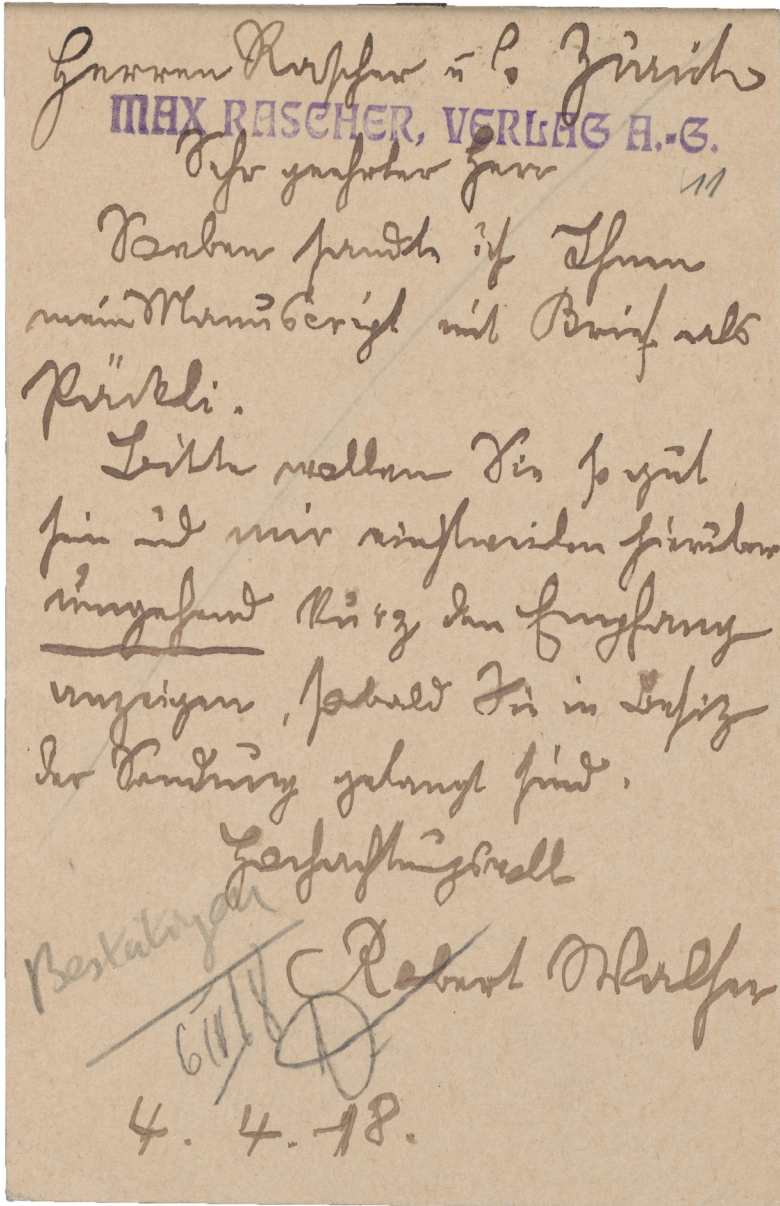 Herren Rascher u Co Zürich
MAX RASCHER, VERLAG A.-G.
Sehr geehrter Herr
11
Soeben sandte ich Ihnen
mein Manuscript mit Brief als
Päckli.
Bitte wollen Sie so gut
sein und mir einstweilen hierüber
umgehend kurz den Empfang
anzeigen, sobald Sie in Besitz
der Sendung gelangt sind.
Hochachtungsvoll
Robert Walser
Bestätigen
4. 4. 18.